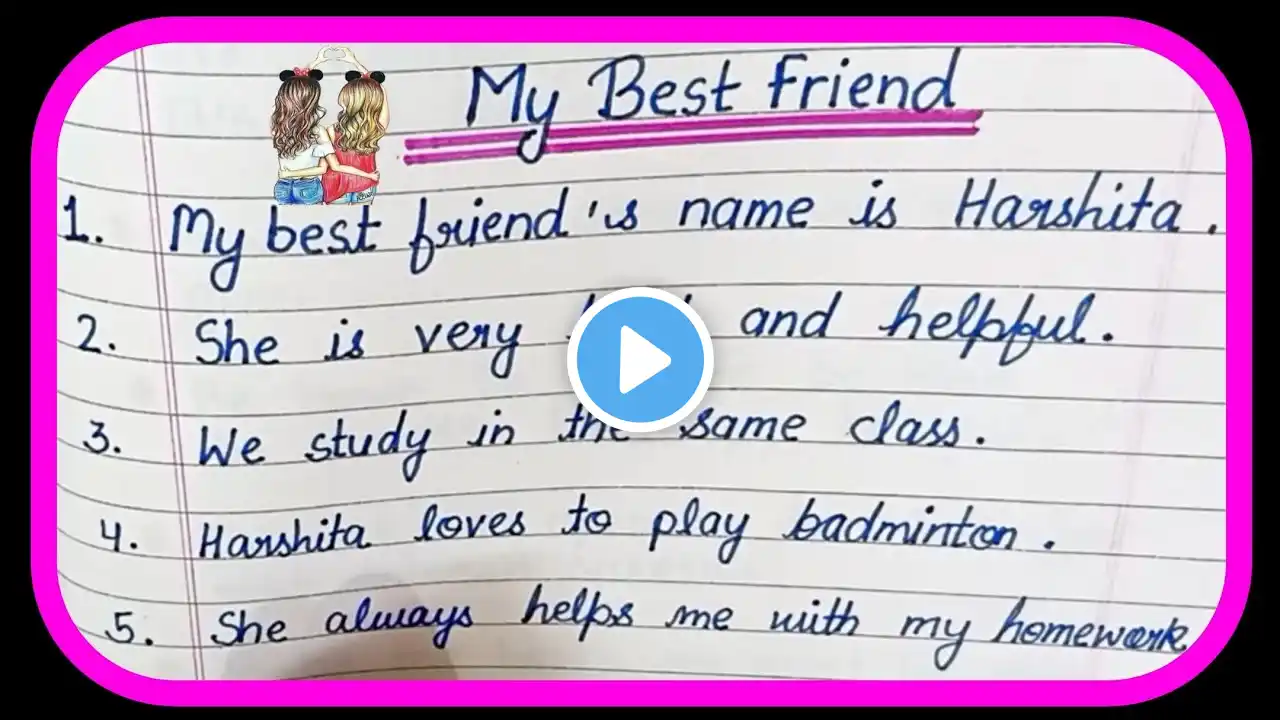 My Best Friend
1. My best friend's name is Harshita.
2. She is very and helpful.
3. We study in the same class.
4. Harshita loves to play badminton.
5. She always helps me with my homework